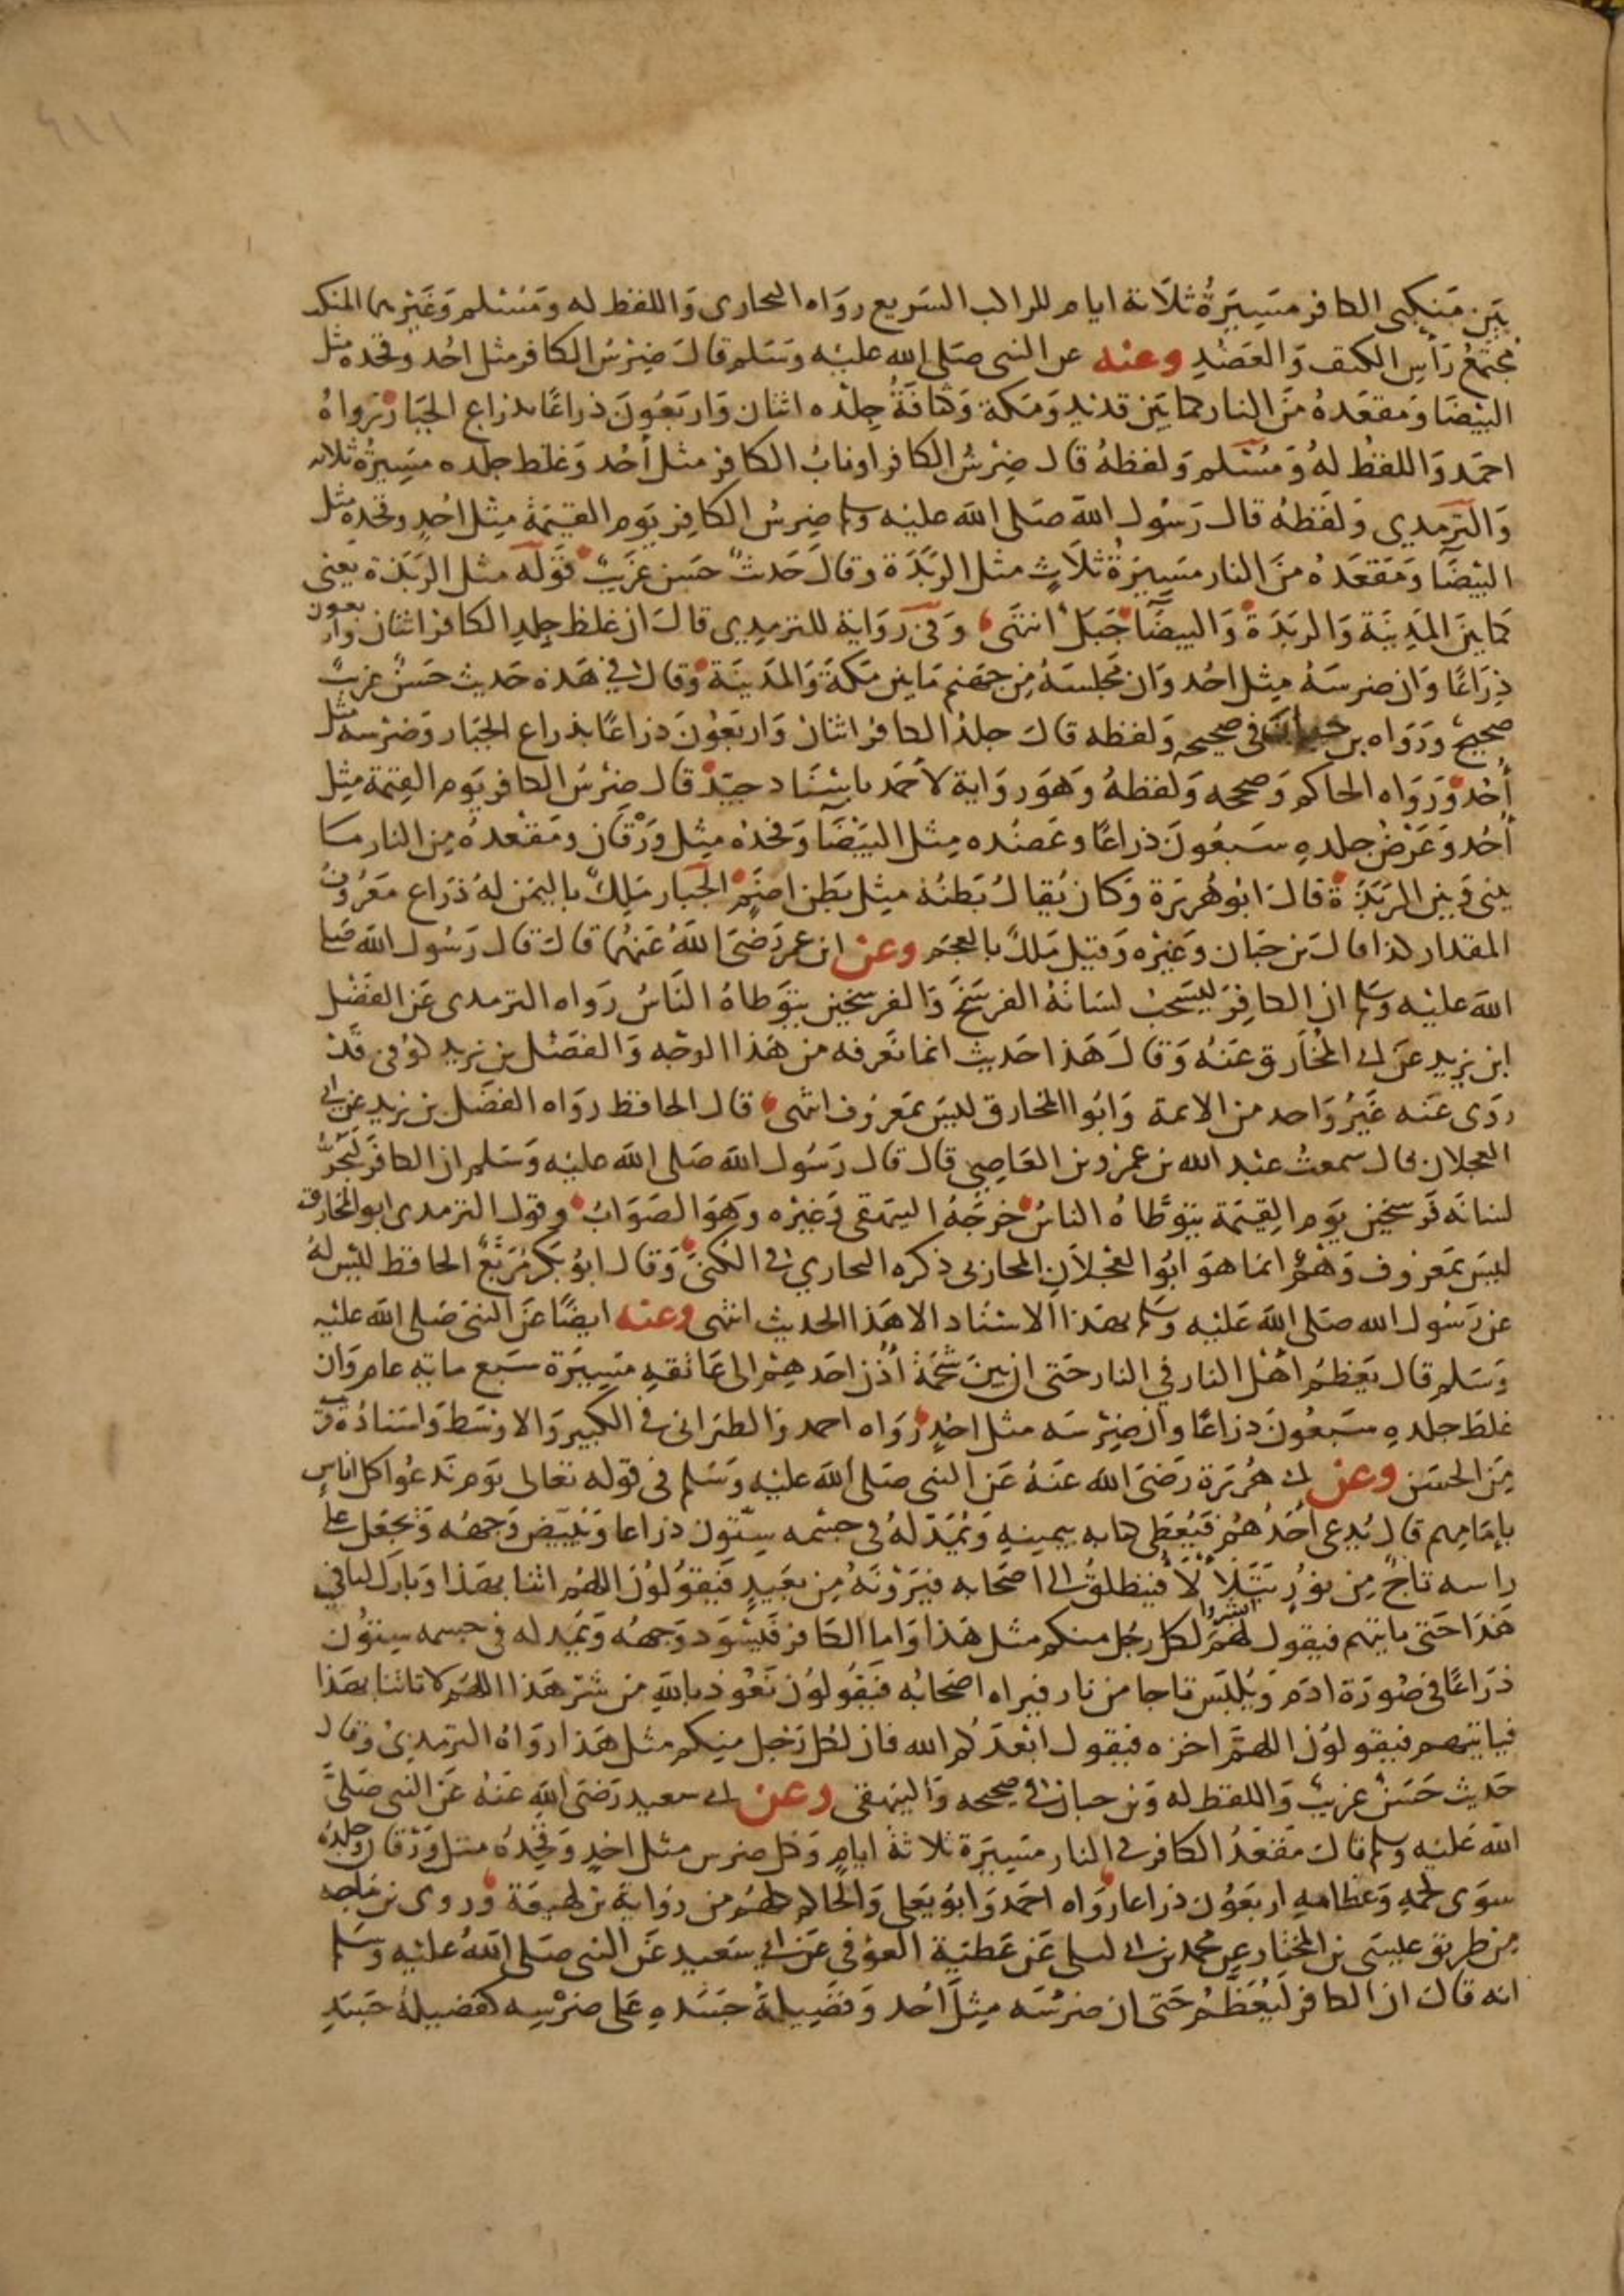 بين منكبى الكافر مسيرة ثلاثة ايام للراكب السريع رواه البخارى واللفظ له ومسلم وغيرهما المنكب
مجتمع رأس الكتف والعضد وعنه عن النبى صلى الله عليه وسلم قال ضرس الكافر مثل احد وفخذه مثل
البيضا ومقعده من النار كما بين قديد ومكة وكثافة جلده اثنان واربعون ذراعا بذراع الجبار رواه
احمد واللفظ له ومسلم ولفظه قال ضرس الكافر او ناب الكافر مثل أحد وغلظ جلده مسيرة ثلاثه
والترمدي ولفظه قال رسول الله صلى الله عليه وسلم ضرس الكافر يوم القيمة مثل احد وفخذه مثل
البيضا ومقعده من النار مسيرة ثلاث مثل الربذة وقال حديث حسن غريب قوله مثل الربذة يعنى
كما بين المدينة والربذة والبيضا جبل انتهى وفى رواية للترمدي قال ان غلظ جلد الكافر اثنان واربعون
ذراعا وان ضرسه مثل احد وان مجلسه من جهنم مابين مكة والمدينة وقال في هذه حديث حسن غريب
صحيح ورواه بن حبان فى صحيحه ولفظه قال جلد الكافر اثنان واربعون ذراعا بذراع الجبار وضرسه مثل
أحد ورواه الحاكم وصححه ولفظه وهو رواية لاحمد باسناد جيد قال ضرس الكافر يوم القيمة مثل
أحد وعرض جلده سبعون ذراعا وعضده مثل البيضا وفخذه مثل ورقان ومقعده من النار ما
بينى وبين الربذة قال ابو هريرة وكان يقال بطنه مثل بطن اضم الجبار ملك باليمن له ذراع معروف
المقدار كذا قال بن حبان وغيره وقيل ملك بالعجم وعن ابن عمر رضى الله عنهما قال قال رسول الله صلى
الله عليه وسلم ان الكافر ليسحب لسانه الفرسخ والفرسخين يتوطاه الناس رواه الترمدى عن الفضل
ابن يزيد عن ابى المخارق عنه وقال هذا حديث انما نعرفه من هذا الوجه والفضل بن يزيد كوفى قد
روى عنه غير واحد من الايمة وابوا المخارق ليس بمعروف انتهى قال الحافظ رواه الفضل بن يزيد عن ابى
العجلان قال سمعت عبد الله بن عمرو بن العاصي قال قال رسول الله صلى الله عليه وسلم ان الكافر ليجر
لسانه فرسخين يوم القيمة يتوطاه الناس خرجه البيهقى وغيره وهو الصواب وقول الترمدى ابو المخارق
ليس بمعروف وهم انما هو ابوا العجلان المحاربى ذكره البخاري فى الكنى وقال ابو بكر مربع الحافظ ليس له
عن رسول الله صلى الله عليه وسلم بهذا الاسناد الا هذا الحديث انتهى وعنه ايضا عن النبى صلى الله عليه
وسلم قال يعظم اهل النار في النار حتى ان بين شحمة أذن احدهم الى عاتقه مسيرة سبع ماية عام وان
غلظ جلده سبعون ذراعا وان ضرسه مثل احد رواه احمد والطبرانى فى الكبير والاوسط واسناده قريب
من الحسن وعن ابى هريرة رضى الله عنه عن النبى صلى الله عليه وسلم فى قوله تعالى يوم ندعوا كل اناس
بإمامهم قال يدعى احدهم فيعطى كتابه بيمينه ويمد له فى جسمه ستون ذراعا ويبيض وجهه ويجعل على
راسه تاج من نور يتلألأ فينطلق الى اصحابه فيرونه من بعيد فيقولون اللهم اتنا بهذا وبارك لنا في
هذا حتى ياتيهم فيقول لهم ابشروا لكل رجل منكم مثل هذا واما الكافر فيسود وجهه ويمد له فى جسمه ستون
ذراعا فى صورة ادم ويلبس تاجا من نار فيراه اصحابه فيقولون نعوذ بالله من شر هذا اللهم لا تاتنا بهذا
فياتيهم فيقولون اللهم اخزه فيقول ابعدكم الله فان لكل رجل منكم مثل هذا رواه الترمدي وقال
حديث حسن غريب واللفظ له وبن حبان فى صحيحه والبيهقى وعن ابى سعيد رضى الله عنه عن النبى صلى
الله عليه وسلم قال مقعد الكافر فى النار مسيرة ثلاثة ايام وكل ضرس مثل احد وفخذه مثل ورقان وجلده
سوى لحمه وعظامه اربعون ذراعا رواه احمد وابو يعلى والحاكم كلهم من رواية بن لهيعة وروى بن ماجه
من طريق عيسى بن المختار عن محمد بن ابى ليلى عن عطية العوفى عن ابى سعيد عن النبى صلى الله عليه وسلم
انه قال ان الكافر ليعظم حتى ان ضرسه مثل أحد وفضيلة جسده على ضرسه كفضيلة جسد